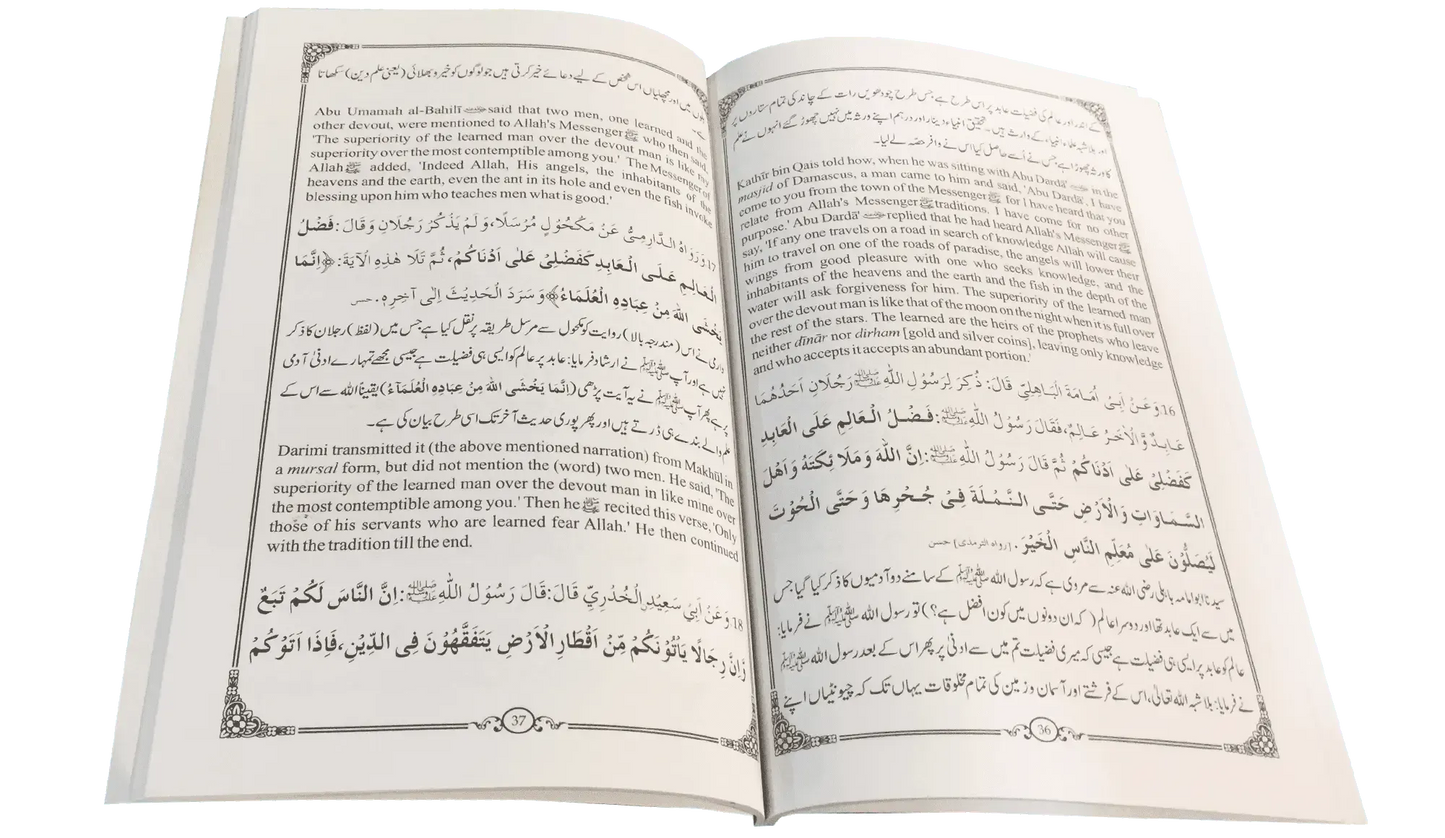 کے اندر اور عالم کی فضیلت عابد پر اس طرح ہے جس طرح چودھویں رات کے چاند کی تمام ستاروں پر
اور بلاشبہ علماء انبیاء کے وارث ہیں۔ تحقیق انبیاء دینار اور درہم اپنے ورثہ میں نہیں چھوڑ گئے انہوں نے علم
کا ورثہ چھوڑا ہے جس نے اُسے حاصل کیا اس نے وافر حصّہ لے لیا۔
Kathīr bin Qais told how, when he was sitting with Abu Dardā' in the
masjid of Damascus, a man came to him and said, 'Abu Dardā', I have
come to you from the town of the Messenger ﷺ for I have heard that you
relate from Allah's Messenger ﷺ traditions. I have come for no other
purpose.' Abu Dardā' replied that he had heard Allah's Messenger ﷺ
say, 'If any one travels on a road in search of knowledge Allah will cause
him to travel on one of the roads of paradise, the angels will lower their
wings from good pleasure with one who seeks knowledge, and the
inhabitants of the heavens and the earth and the fish in the depth of the
water will ask forgiveness for him. The superiority of the learned man
over the devout man is like that of the moon on the night when it is full over
the rest of the stars. The learned are the heirs of the prophets who leave
neither dīnār nor dirham [gold and silver coins], leaving only knowledge
and who accepts it accepts an abundant portion.'
16 وَعَنْ اَبِیْ اُمَامَةَ الْبَاهِلِیِّ قَالَ: ذُكِرَ لِرَسُوْلِ اللهِ ﷺ رَجُلَانِ اَحَدُهُمَا
عَابِدٌ وَّالْاٰخَرُ عَالِمٌ، فَقَالَ رَسُوْلُ اللهِ ﷺ: فَضْلُ الْعَالِمِ عَلَى الْعَابِدِ
كَفَضْلِیْ عَلٰى اَدْنَاكُمْ ثُمَّ قَالَ رَسُوْلُ اللهِ ﷺ: اِنَّ اللهَ وَمَلَائِكَتَهٗ وَاَهْلَ
السَّمٰوَاتِ وَالْاَرْضِ حَتَّى النَّمْلَةَ فِیْ جُحْرِهَا وَحَتَّى الْحُوْتَ
لَیُصَلُّوْنَ عَلٰى مُعَلِّمِ النَّاسِ الْخَیْرَ. [رواه الترمذی] حسن
سیدنا ابوامامہ باہلی رضی اللہ عنہ سے مروی ہے کہ رسول اللہ ﷺ کے سامنے دو آدمیوں کا ذکر کیا گیا جس
میں سے ایک عابد تھا اور دوسرا عالم (کہ ان دونوں میں کون افضل ہے؟) تو رسول اللہ ﷺ نے فرمایا:
عالم کو عابد پر ایسی ہی فضیلت ہے جیسی کہ میری فضیلت تم میں سے ادنیٰ پر پھر اس کے بعد رسول اللہ ﷺ
نے فرمایا: بلاشبہ اللہ تعالیٰ، اس کے فرشتے اور آسمان و زمین کی تمام مخلوقات یہاں تک کہ چیونٹیاں اپنے
36
بلوں میں اور مچھلیاں اس شخص کے لیے دعائے خیر کرتی ہیں جو لوگوں کو خیر و بھلائی (یعنی علم دین) سکھاتا
ہے۔
Abu Umamah al-Bahilī said that two men, one learned and the
other devout, were mentioned to Allah's Messenger ﷺ who then said,
'The superiority of the learned man over the devout man is like my
superiority over the most contemptible among you.' The Messenger of
Allah ﷺ added, 'Indeed Allah, His angels, the inhabitants of the
heavens and the earth, even the ant in its hole and even the fish invoke
blessing upon him who teaches men what is good.'
17 وَرَوَاهُ الدَّارِمِیُّ عَنْ مَكْحُوْلٍ مُرْسَلًا، وَلَمْ یَذْكُرْ رَجُلَانِ وَقَالَ: فَضْلُ
الْعَالِمِ عَلَى الْعَابِدِ كَفَضْلِیْ عَلٰى اَدْنَاكُمْ، ثُمَّ تَلَا هٰذِهِ الْاٰیَةَ: ﴿اِنَّمَا
یَخْشَى اللهَ مِنْ عِبَادِهِ الْعُلَمَاءُ﴾ وَسَرَدَ الْحَدِیْثَ اِلٰى آخِرِهٖ. حسن
دارمی نے اس (مندرجہ بالا) روایت کو مکحول سے مرسل طریقہ پر نقل کیا ہے جس میں (لفظ) رجلان کا ذکر
نہیں ہے اور آپ ﷺ نے ارشاد فرمایا: عابد پر عالم کو ایسی ہی فضیلت ہے جیسی مجھے تمہارے ادنیٰ آدمی
پر ہے پھر آپ ﷺ نے یہ آیت پڑھی (اِنَّمَا یَخْشَى اللهَ مِنْ عِبَادِهِ الْعُلَمَآءُ) یقیناً اللہ سے اس کے
علم والے بندے ہی ڈرتے ہیں اور پھر پوری حدیث آخر تک اسی طرح بیان کی ہے۔
Darimi transmitted it (the above mentioned narration) from Makhūl in
a mursal form, but did not mention the (word) two men. He said, 'The
superiority of the learned man over the devout man in like mine over
the most contemptible among you.' Then he ﷺ recited this verse, 'Only
those of his servants who are learned fear Allah.' He then continued
with the tradition till the end.
18 وَعَنْ اَبِیْ سَعِیْدِ الْخُدْرِیِّ قَالَ: قَالَ رَسُوْلُ اللهِ ﷺ: اِنَّ النَّاسَ لَكُمْ تَبَعٌ
وَّاِنَّ رِجَالًا یَاْتُوْنَكُمْ مِّنْ اَقْطَارِ الْاَرْضِ یَتَفَقَّهُوْنَ فِی الدِّیْنِ، فَاِذَا اَتَوْكُمْ
37